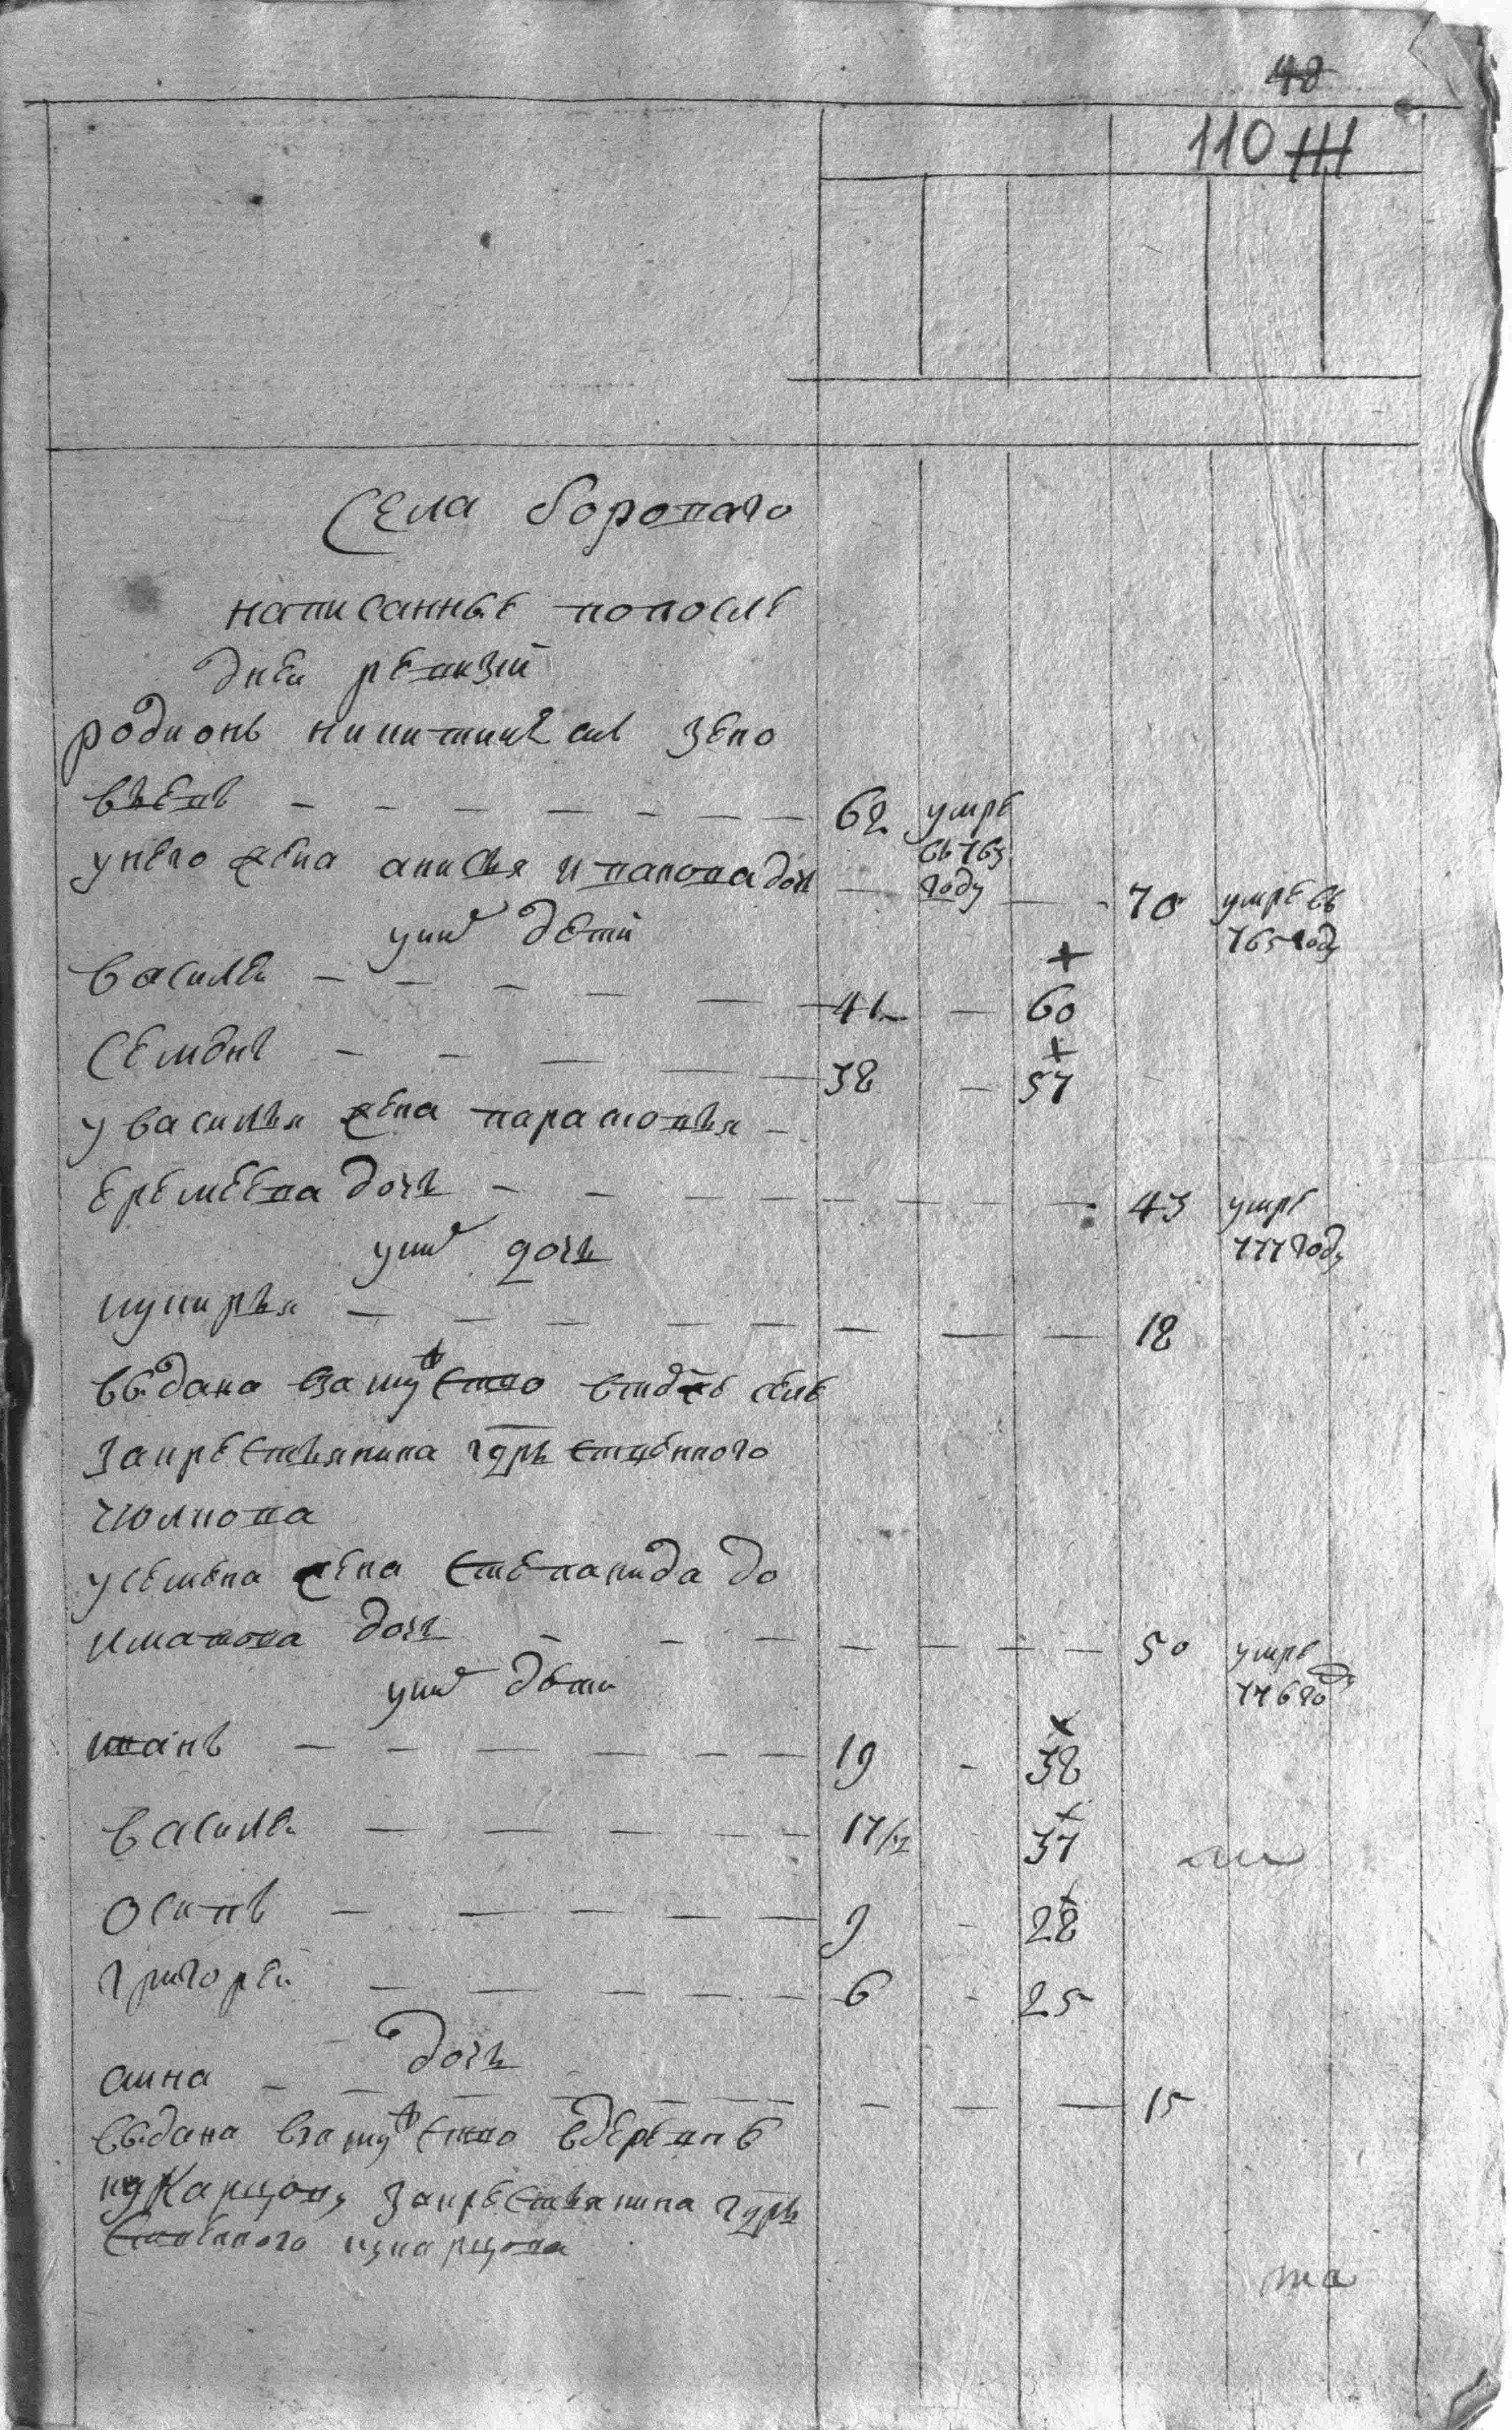 48
110 111
Села борового
написанные попосле
дней ревизии
родионъ никитинъ снъ зено
въевъ 62 умре
въ 763
году
унего жена анисья иванова дочь 70 умре въ
765 году
унихъ дети
василей 41 60
семенъ 38 57
у василья жена парасковья
еремеева дочь 43 умре
777 году
унихъ дочь
лукирья 18
выдана взамужство селе
закрестьянина гдрь ственного
усемена жена степанида до
иматова дочь 50 умре
776 году
унихъ дети
иванъ 19 38
василей 17 37
осипъ 9 28
григорей 6 25
дочь
анна 15
выдана взамужство вдеревне
закрестьянина гдрь
ственного